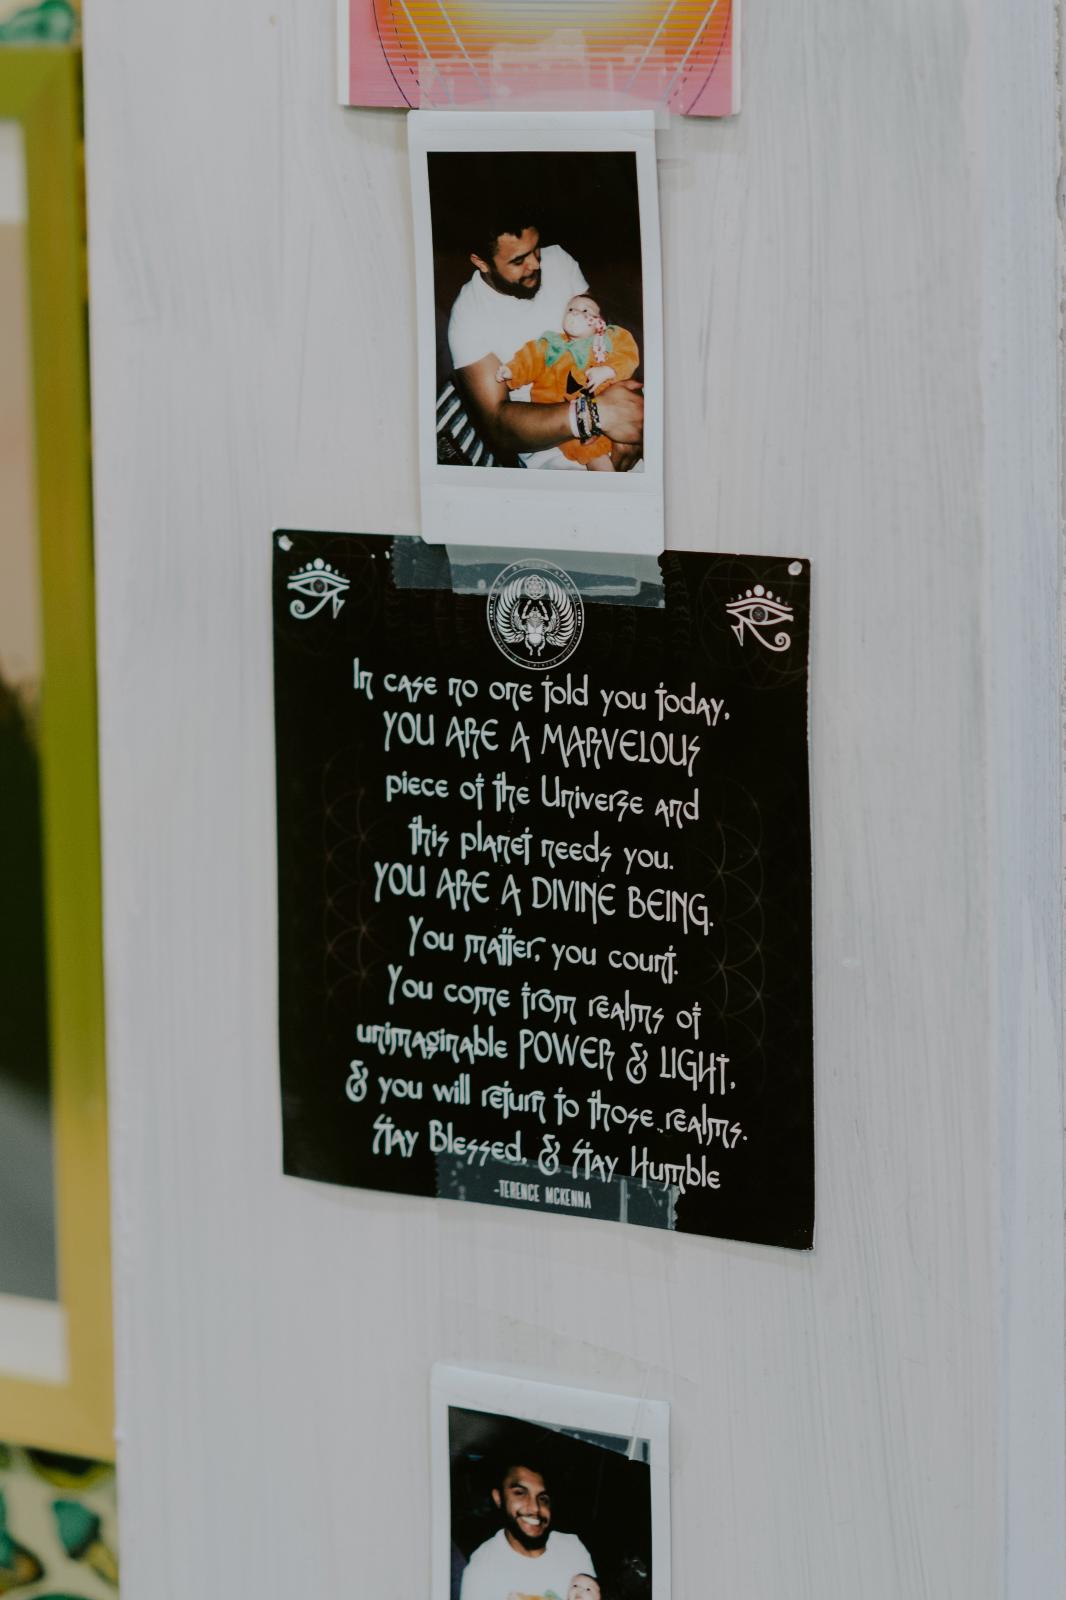 In case no one told you today,
YOU ARE A MARVELOUS
piece of the Universe and
this planet needs you.
YOU ARE A DIVINE BEING.
You matter, you count.
You come from realms of
unimaginable POWER & LIGHT,
& you will return to those realms.
Stay Blessed, & Stay Humble
-TERENCE MCKENNA